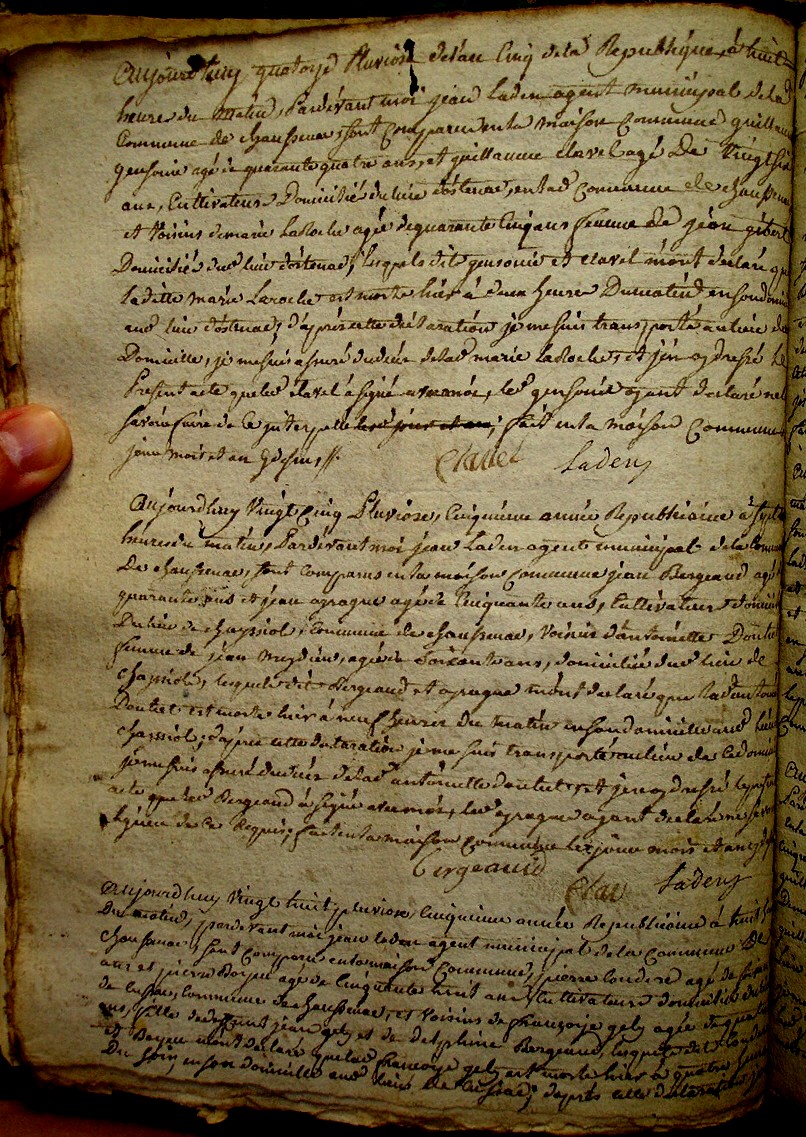 Aujourdhuy quatorze Pluviose delan Cinq dela Republique, à huit
heures du matin, Pardevant moi jean Laden agent municipal de la
Commune de chaussenac, sont Comparu en la maison Commune guillaume
gensonie agé de quarante quatre ans, et guillaume clavel agé De Vingt
ans, Cultivateurs Domiciliés du lieu dostenac, en lad. Commune de chaussenac
et Voisins de marie LaRoche agée de quarante Cinq ans femme de jean gibert
Domiciliée dud. lieu dostenac, lesquels dits gensonie et clavel m'ont declaré que
laditte marie Laroche est morte hier à deux heures Dumatin en son domicile
aud. lieu dostenac, d'après cette déclaration je me suis transporté au lieu de
Domicille, je me suis assuré du décès de lad. marie LaRoche, et j'en ay dressé le
Present acte que led. clavel à signé avec moi, led. gensonie ayant declaré ne
savoir faire de ce interpellé les jour et an, fait en la maison Commune
jour mois et an
Clavel Laden
Aujourdhuy Vingt Cinq Pluviose, Cinquieme année Republicaine à sept
heures du matin, Pardevant moi jean Laden agent municipal de la Commune
De chaussenac, sont Comparus en la maison Commune jean Bergeaud agé
quarante ans et jean apragne agé de Cinquante ans, Cultivateurs
Du lieu de chassiol, Commune de chaussenac, Voisins d'antoinette Doutet
femme de jean, agée de soixante ans, domiciliée dud. lieu de
chassiol, lesquels dits Bergeaud et apragne m'ont declaré que lad. antoinette
Doutet est morte hier à neuf heures du matin en son domicille aud. lieu
chassiol, d'après cette declaration je me suis transporté au lieu de ce domicile
je me suis assuré du décès de lad. antoinette doutet, et j'en ay dressé le present
acte que led. Bergeaud à signé avec moi, led. apragne ayant declaré ne savoir
signer de ce Requis, fait en la maison Commune les jour mois et an
Bergeaud
Clav Laden
Aujourdhuy Vingt huit pluviose, Cinquieme année Republicaine à huit heures
Du matin, pardevant moi jean laden agent municipal de la Commune De
chaussenac, sont Comparu en la maison Commune, pierre agé de
ans et pierre Boyeu agé de Cinquante huit ans, Cultivateurs domiciliés du lieu
de, Commune de chaussenac, et Voisins de françoise gely agée de quarante
ans, fille de deffunt jean gely et de delphine Bergeaud, lesquels dits
et Boyeu m'ont declaré que lad. françoise gely est morte hier à quatre heures
Du soir, en son domicille aud. lieu de, d'après cette déclaration je